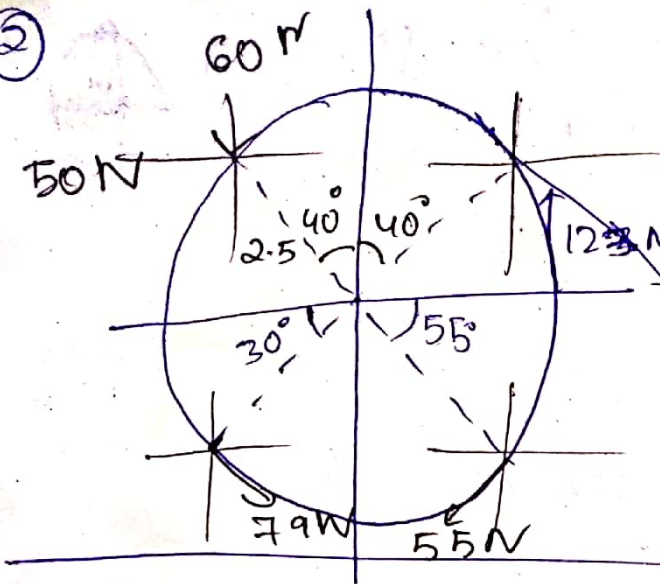 2
60 N
50 N
40° 40°
2.5
30° 55°
79N 55N